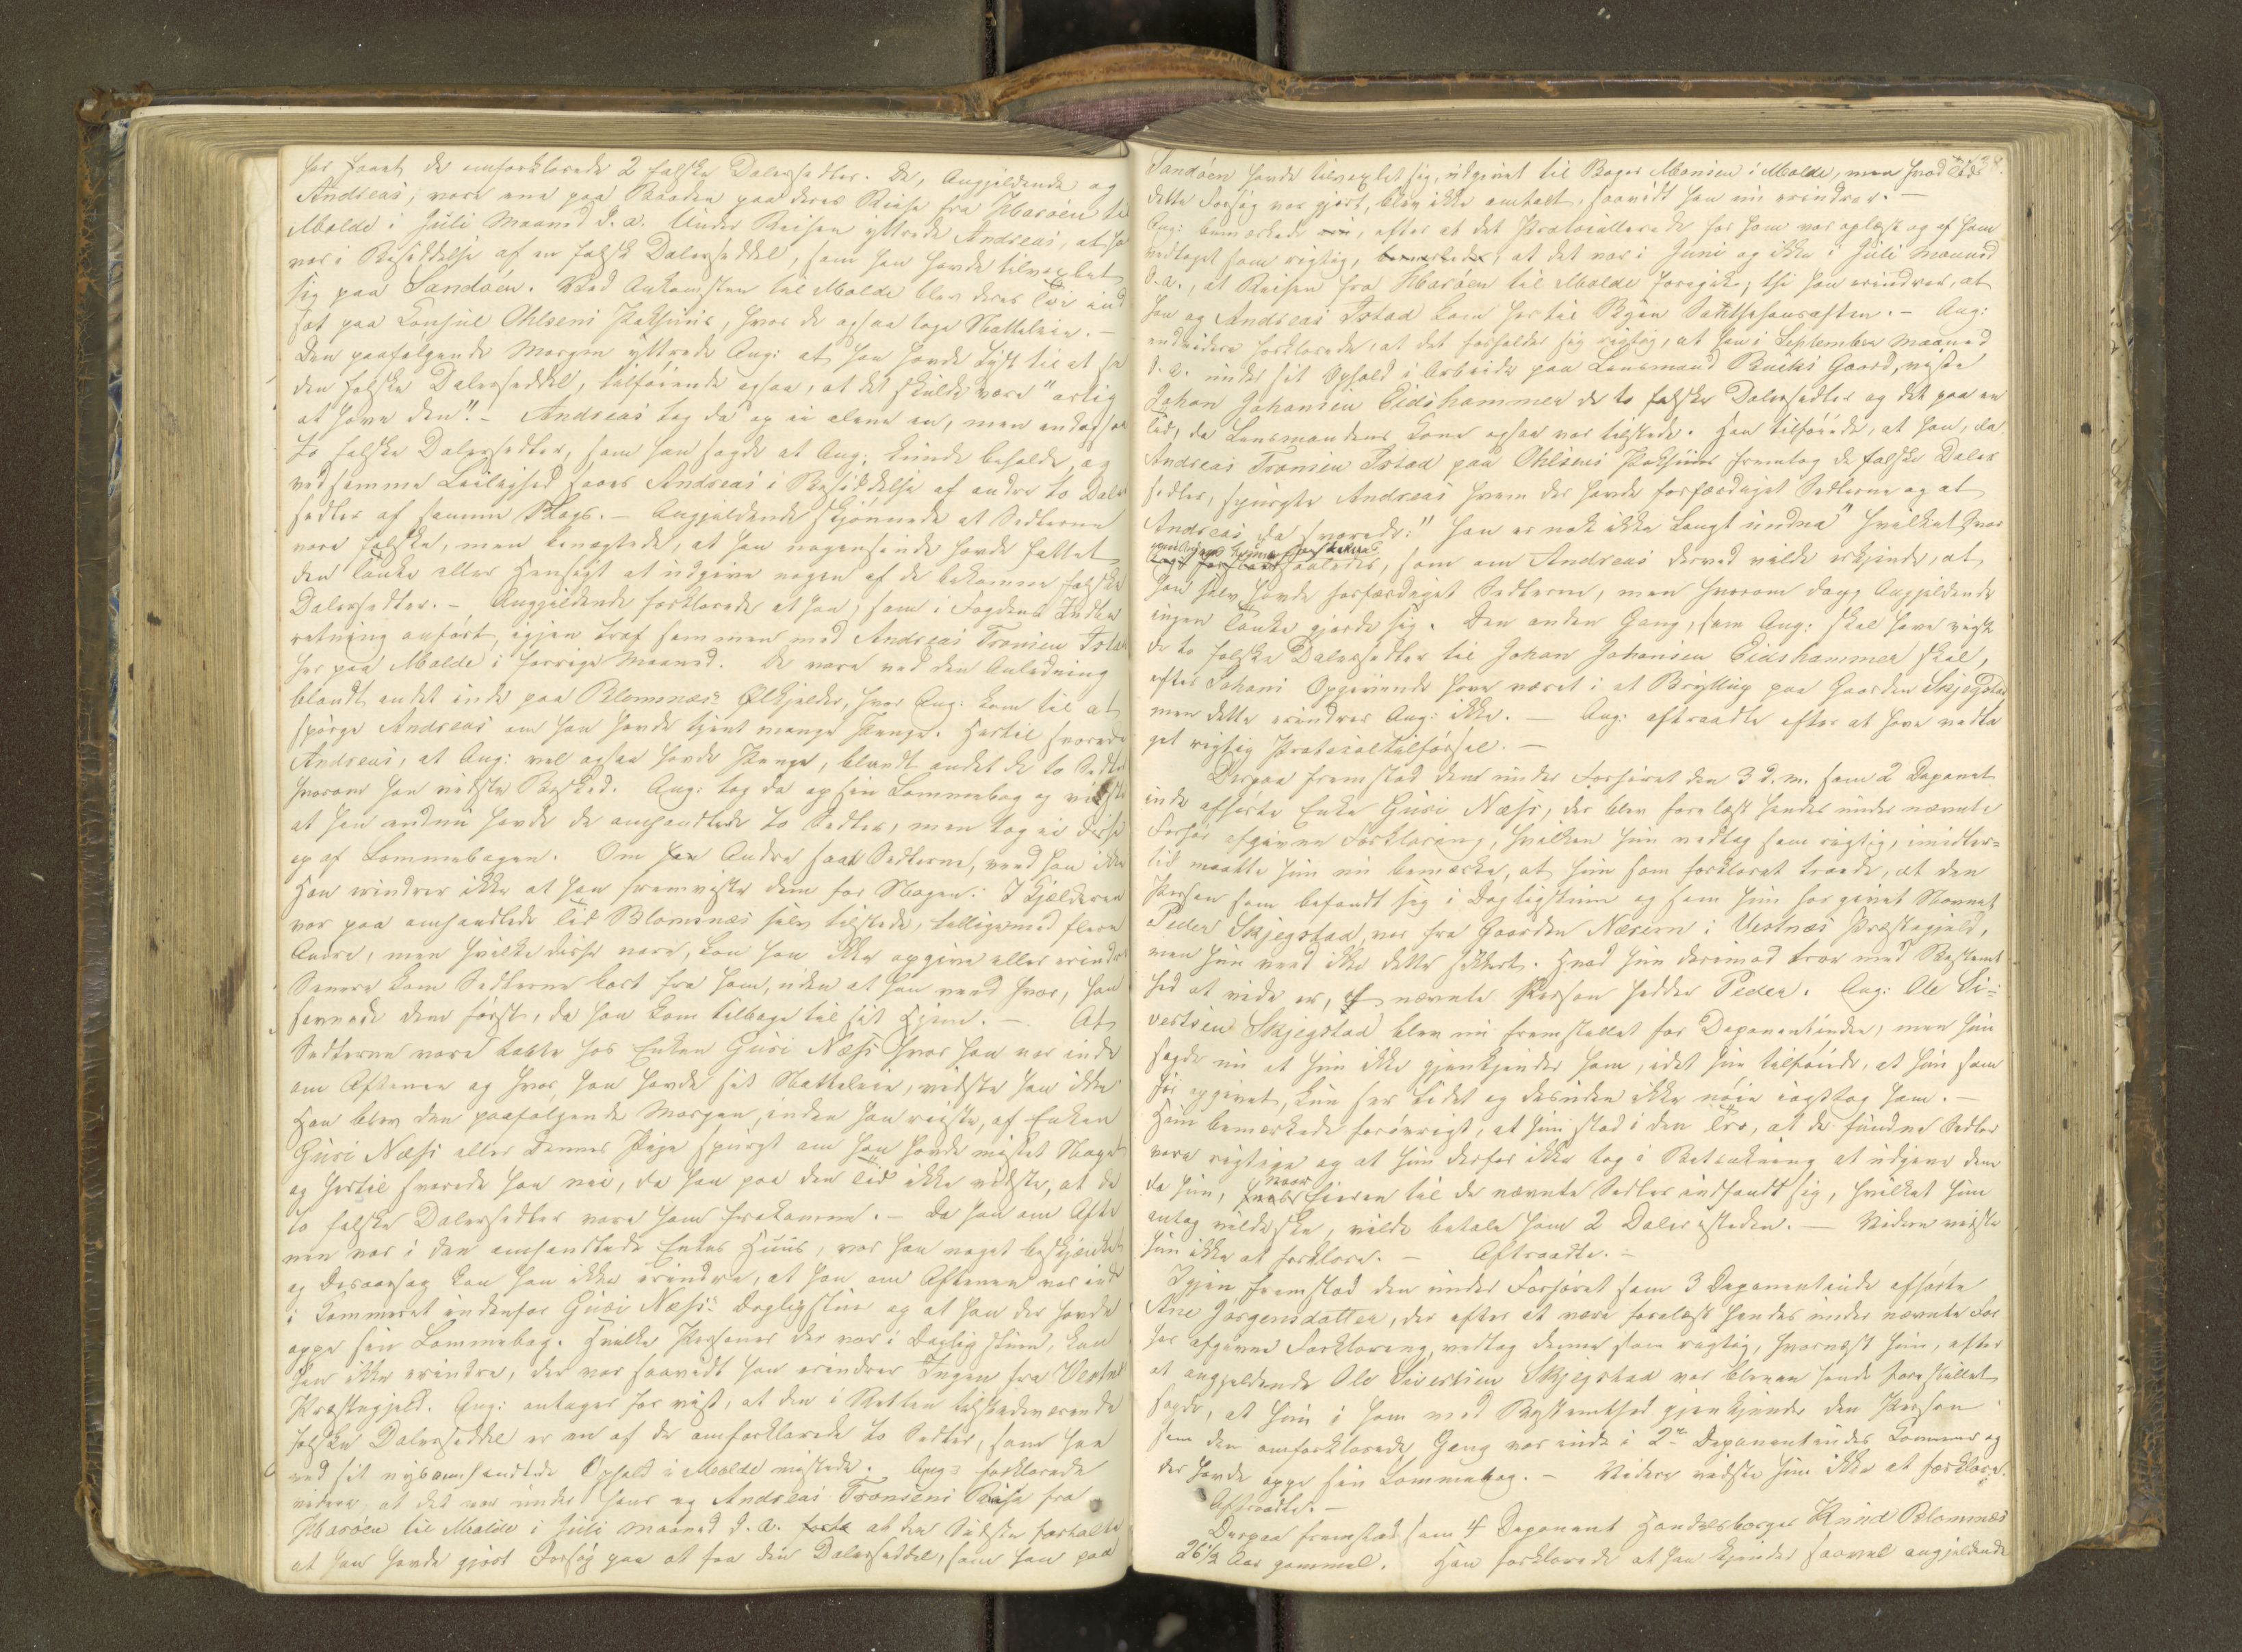 har faaet de omforklarede 2 falske Dalersedler. De, Angjeldende og
Andreas, vare ene paa Baaden paa deres Reise fra Harøen til
Molde i Juli Maaned d. A. Under Reisen yttrede Andreas, at han
var i Besiddelse af en falsk Dalerseddel, som han havde tilvexlet
sig paa Sandøen. Ved Ankomsten til Molde blev deres Tøi ind
sat paa Consul Ohlsens Pakhuus, hvor de ogsaa toge Natteleie. –
Den paafølgende Morgen yttrede Ang: at han havde Lyst til at se
den falske Dalerseddel, tilføiende ogsaa, at det skulde være "artig
at have den". – Andreas tog da op ei alene en, men endogsaa
to falske Dalersedler, som han sagde at Ang: kunde beholde, og
ved samme Leilighed saaes Andreas i Besiddelse af andre to Daler
sedler af samme Slags. – Angjeldende skjønnede at Sedlerne
vare falske, men benægtede, at han nogensinde havde fattet
den Tanke eller Hensigt at udgive nogen af de bekomne falske
Dalersedler. – Angjeldende forklarede at han, som i Fogdens Indbe
retning anført, igjen traf sammen med Andreas Tronsen Istad
her paa Molde i forrige Maaned. De vare ved den Anledning
blandt andet inde paa Blomnæs's Ølkjelder, hvor Ang: kom til at
spørge Andreas om han havde tjent mange Penge. Hertil svarede
Andreas, at Ang: vel ogsaa havde Penge, blandt andet de to Sedler
hvorom han vidste Besked. Ang: tog da op sin Lommebog og viiste
at han endnu havde de omhandlede to Sedler, men tog ei disse
op af Lommebogen. Om Andre saae Sedlerne, veed han ikke
Han erindrer ikke at han fremviste dem for Nogen. I Kjelderen
var paa omhandlede Tid Blomnæs selv tilstede, tilligemed flere
Andre, men hvilke disse vare, kan han ikke opgive eller erindre
Senere kom Sedlerne bort fra ham, uden at han veed hvor, han
savnede dem først, da han kom tilbage til sit Hjem. – At
Sedlerne vare tabte hos Enken Guri Næss hvor han var inde
om Aftenen og hvor han havde sit Natteleie, vidste han ikke.
Han blev den paafølgende Morgen, inden han reiste, af Enken
Guri Næss eller dennes Pige spurgt om han havde mistet Noget
og hertil svarede han nei, da han paa den Tid ikke vidste, at de
to falske Dalersedler vare ham frakomne. – Da han om Afte
nen var i den omhandlede Enkes Huus, var han noget beskjænket
og desaarsag kan han ikke erindre, at han om Aftenen var inde
i Kammeret indenfor Guri Næss's Dagligstue og at han der havde
oppe sin Lommebog. Hvilke Personer der var i Dagligstuen, kan
han ikke erindre, der var saavidt han erindrer Ingen fra Vestnæs
Præstegjeld. Ang: antager for vist, at den i Retten tilstedeværende
falske Dalerseddel er en af de omforklarede to Sedler, som han
ved sit nysomhandlede Ophold i Molde mistede. Ang: forklarede
videre, at det var under hans og Andreas Tronsens Reise fra
Harøen til Molde i Juli Maaned d. A. at den Sidste fortalte
at han havde gjort Forsøg paa at faa den Dalerseddel, som han paa
Sandøen havde tilvexlet sig, udgivet til Bager Monsen i Molde, men hvad Tid
dette Forsøg var gjort, blev ikke omtalt, saavidt han nu erindrer. –
Ang: bemærkede, efter at det Protocollerede for ham var oplæst og af ham
vedtaget som rigtig, at det var i Juni og ikke i Juli Maaned
d. A., at Reisen fra Harøen til Molde foregik, thi han erindrer, at
han og Andreas Istad kom her til Byen Sanktehansaften. – Ang:
endvidere forklarede, at det forholder sig rigtig, at han i September Maaned
d. A. under sit Ophold i Arbeide paa Lensmand Gaard, viste
Johan Johansen Eidshammer de to falske Dalersedler og det paa en
Tid, da Lensmandens Kone ogsaa var tilstede. Han tilføiede, at han, da
Andreas Tronsen Istad paa Ohlsens Pakhuus fremtog de falske Daler
sedler, spurgte Andreas hvem der havde forfærdiget Sedlerne og at
Andreas da svarede: "han er nok ikke langt undna" hvilket Svar
saaledes, som om Andreas derved vilde erkjende, at
han selv havde forfærdiget Sedlerne, men hvorom dog Angjeldende
ingen Tanke gjorde sig. Den anden Gang, som Ang: skal have viist
de to falske Dalersedler til Johan Johansen Eidshammer skal,
efter Johans Opgivende have været i et Bryllup paa Gaarden Skjegstad
men dette erindrer Ang: ikke. – Ang: aftraadte efter at have vedta
get rigtig Protocoltilførsel. –
Derpaa fremstod den under Forhøret den 3 d. M. som 2 Deponent
inde afhørte Enke Guri Næss, der blev forelæst hendes under nævnte
Forhør afgivne Forklaring, hvilken hun vedtog som rigtig, imidler=
tid maatte hun nu bemærke, at hun som forklaret troede, at den
Person som befandt sig i Dagligstuen og som hun har givet Navnet
Peder Skjegstad, var fra Gaarden Næseren i Vestnæs Præstegjeld,
men hun veed ikke dette sikkert. Hvad hun derimod tror med Bestemt
hed at vide er, at nævnte Person hedder Peder. Ang: Ole Si=
vertsen Skjegstad blev nu fremstillet for Deponentinden, men hun
sagde nu at hun ikke gjenkjender ham, idet hun tilføiede, at hun som
før opgivet, kun ser lidet og desuden ikke nøie iagttog ham. –
Hun bemærkede forøvrigt, at hun stod i den Tro, at de fundne Sedler
vare rigtige og at hun derfor ikke tog i Betænkning at udgive dem
da hun, naar Eieren til de nævnte Sedler indfandt sig, hvilket hun
antog vilde ske, vilde betale ham 2 Daler isteden. – Videre vidste
hun ikke at forklare. – Aftraadte. –
Igjen fremstod den under Forhøret som 3 Deponentinde afhørte
Ane Jørgensdatter, der efter at være forelæst hendes under nævnte For
hør afgivne Forklaring, vedtog denne som rigtig, hvornæst hun, efter
at angjeldende Ole Sivertsen Skjegstad var bleven hende foreskillet
sagde, at hun i ham med Bestemthed gjenkjende den Person
som den omforklarede Gang var inde i 2den Deponentindes Kammer og
der havde oppe sin Lommebog. – Videre vidste hun ikke at forklare.
Aftraadte. –
Derpaa fremstod som 4 Deponent Handelsborger Knud Blomnæs
26 1/2 Aar gammel. Han forklarede at han kjender saavel angjeldende